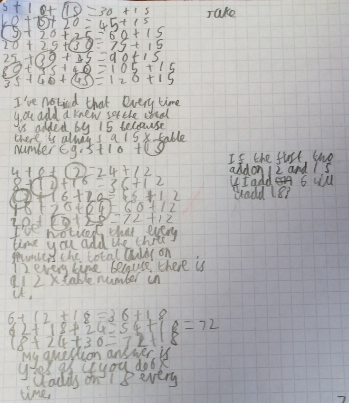 5 + 10 + 15 = 30 + 15
20 = 45 + 15
15 + 20 + 25 = 60 + 15
20 + 25 + 30 = 75 + 15
25 + 30 + 35 = 90 + 15
= 105 + 15
35 + 40 + 45 = 120 + 15
I've noticed that every time
you add a knew set the total
is added by 15 because
there is always a 15 x table
number e.g. 5 + 10 + 15
= 24 + 12
8 + 12 + 16 = 36 + 12
+ 12
= 60 + 12
= 72 + 12
I've noticed that every
time you add the three
numbers the total adds on
12 every time because there is
a 12 x table number in
it.
6 + 12 + 18 = 36 + 18
12 + 18 + 24 = 54 + 18 = 72
18 + 24 + 30 = 72 + 18
My question answer is
yes as if you do 6
it adds on 18 every
time.
Take
If the first two
add on 12 and 15
if I add 6 will
it add 18?
7